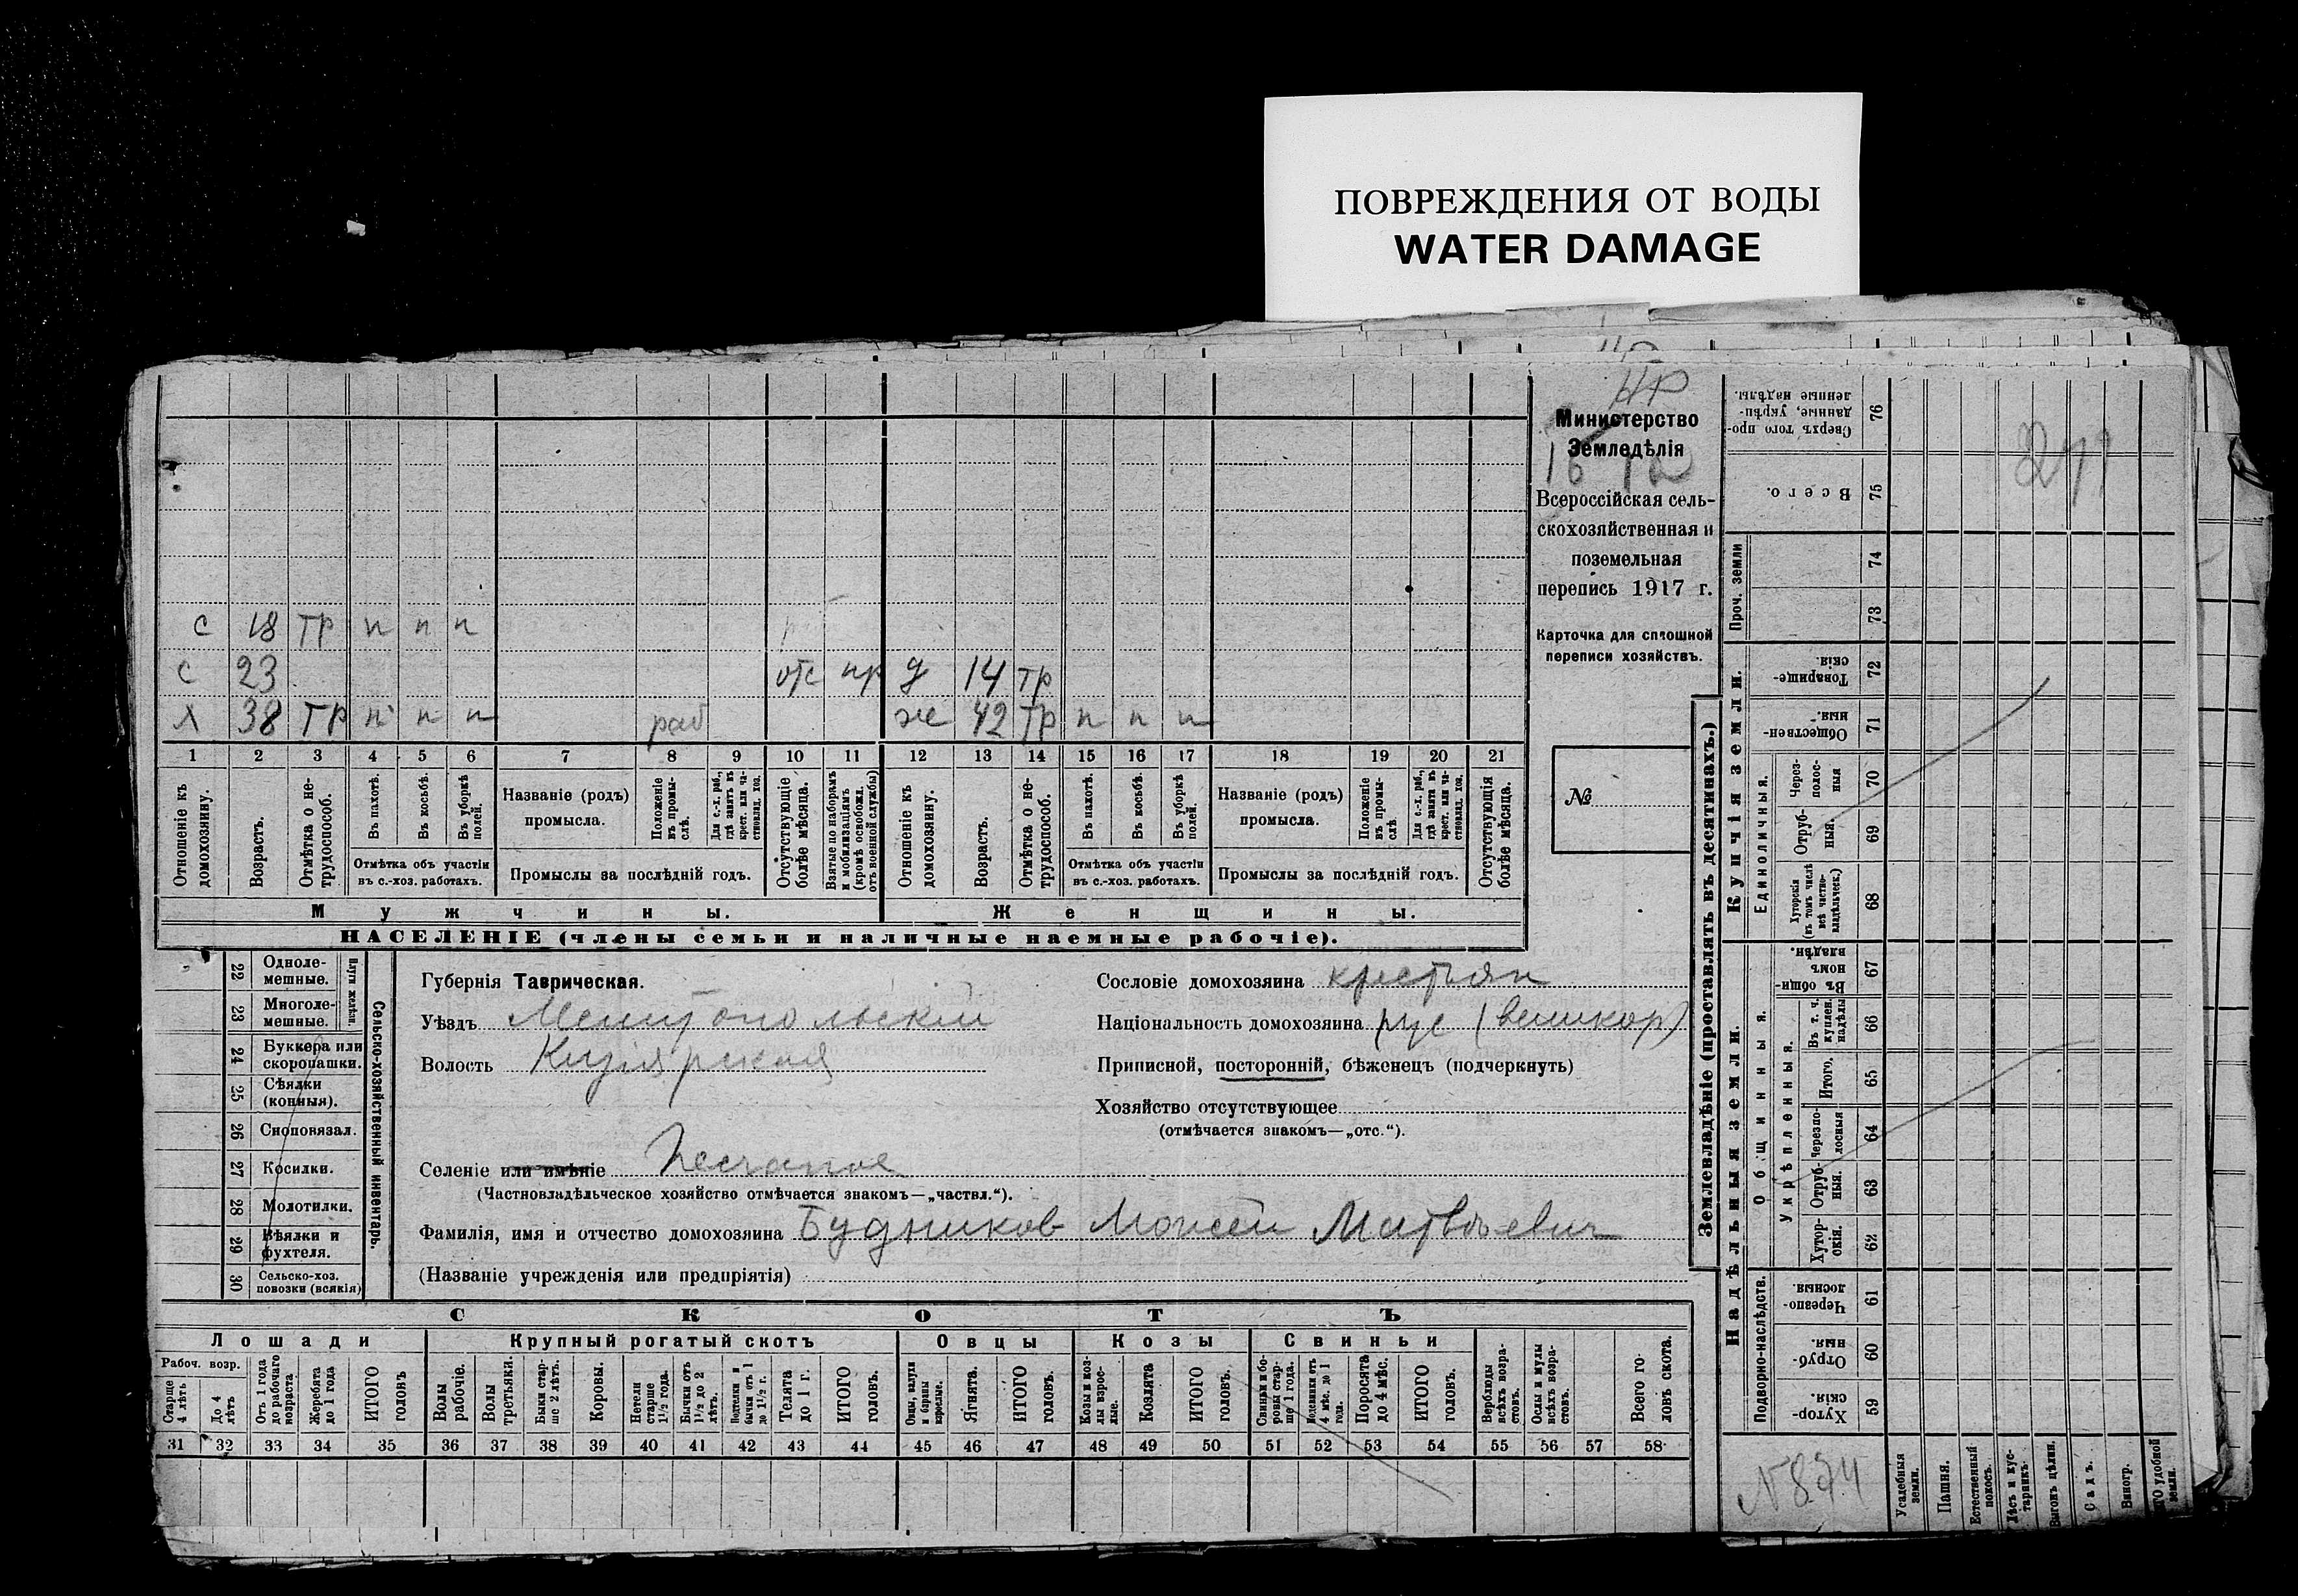 ПОВРЕЖДЕНИЯ ОТ ВОДЫ
WATER DAMAGE
НР
Министерство
Земледѣлія
16
Всероссійская сель-
скохозяйственная и
поземельная
перепись 1917 г.
Карточка для сплошной
переписи хозяйствъ.
№
с 18 тр п п п
с 23 отс пр д 14 тр
х 38 тр п п п раб ж 42 тр п п п
1 2 3 4 5 6 7 8 9 10 11 12 13 14 15 16 17 18 19 20 21
Отношеніе къ домохозяину.
Возрастъ.
Отмѣтка о не-трудоспособ.
Въ пахотѣ.
Въ косьбѣ.
Въ уборкѣ полей.
Отмѣтка объ участіи
въ с.-хоз. работахъ.
Названіе (родъ)
промысла.
Положеніе въ промы-слѣ.
Для с.-х. раб., гдѣ занятъ въ крест. или ча-стновлад. хоз.
Промыслы за послѣдній годъ.
Отсутствующіе болѣе мѣсяца.
Взятые по наборамъ и мобилизаціямъ (кромѣ освобожд. отъ военной службы)
Отношеніе къ домохозяину.
Возрастъ.
Отмѣтка о не-трудоспособ.
Въ пахотѣ.
Въ косьбѣ.
Въ уборкѣ полей.
Отмѣтка объ участіи
въ с.-хоз. работахъ.
Названіе (родъ)
промысла.
Положеніе въ промы-слѣ
Для с.-х. раб., гдѣ занята въ крест. или ча-стновлад. хоз.
Промыслы за послѣдній годъ.
Отсутствующія болѣе мѣсяца.
Мужчины.
Женщины.
НАСЕЛЕНІЕ (члены семьи и наличные наемные рабочіе).
22 Одноле-мешные.
23 Многоле-мешные.
Плуги желѣзн.
24 Буккера или скоропашки.
25 Сѣялки (конныя).
26 Сноповязал.
27 Косилки.
28 Молотилки.
29 Вѣялки и фухтеля.
30 Сельско-хоз. повозки (всякія)
Сельско-хозяйственный инвентарь.
Губернія Таврическая.
Уѣздъ Мелитопольскій
Волость Кизіярская
Селеніе или имѣніе Песчаное
(Частновладѣльческое хозяйство отмѣчается знакомъ—„частвл.“).
Фамилія, имя и отчество домохозяина Будников Моисей Матвѣевич
(Названіе учрежденія или предпріятія)
Сословіе домохозяина крестьян
Національность домохозяина рус (великор)
Приписной, посторонній, бѣженецъ (подчеркнуть)
Хозяйство отсутствующее
(отмѣчается знакомъ—„отс.“).
СКОТЪ
Лошади Крупный рогатый скотъ Овцы Козы Свиньи
Рабоч. возр.
Старше 4 лѣтъ
До 4 лѣтъ
Отъ 1 года до рабочаго возраста
Жеребята до 1 года
ИТОГО головъ
Волы рабочіе.
Волы третьяки.
Быки стар-ше 2 лѣтъ.
Коровы.
Нетели старше 1½ года.
Бычки отъ 1½ до 2 лѣтъ.
Подтелки и бычки отъ 1 до 1½ г.
Телята до 1 г.
ИТОГО головъ.
Овцы, валухи и бараны взрослые.
Ягнята.
ИТОГО головъ.
Козы и коз-лы взрос-лые.
Козлята
ИТОГО головъ.
Свиньи и бо-ровы стар-ше 1 года.
Подсвинки отъ 4 мѣс. до 1 года.
Поросята до 4 мѣс.
ИТОГО головъ.
Верблюды всѣхъ возра-стовъ.
Ослы и мулы всѣхъ возра-стовъ.
Всего го-ловъ скота.
31 32 33 34 35 36 37 38 39 40 41 42 43 44 45 46 47 48 49 50 51 52 53 54 55 56 57 58
Землевладѣніе (проставлять въ десятинахъ.)
Купчія земли.
Надѣльныя земли.
Сверхъ того про-данные, укрѣп-ленные надѣлы. 76
Всего. 75
Проч. земли 74
73
Товарище-скія. 72
Обществен-ныя. 71
Единоличныя.
Через-полос-ныя 70
Отруб-ныя. 69
Хуторскія (въ томъ числѣ всѣ частно-владѣльческ.) 68
Общинныя.
Въ общи-номъ владѣн. 67
Укрѣпленныя.
Въ т. ч. куплен. надѣлы 66
Итого. 65
Черезпо-лосныя 64
Отруб-ныя. 63
Хутор-скія. 62
Подворно-наслѣдств.
Черезпо-лосныя 61
Отруб-ныя. 60
Хутор-скія. 59
Усадебныя земли.
Пашня.
Естественный покосъ.
Лѣсъ и кус-тарникъ
Выгонъ цѣлин.
Садъ.
Виногр.
удобной земли.
N 874